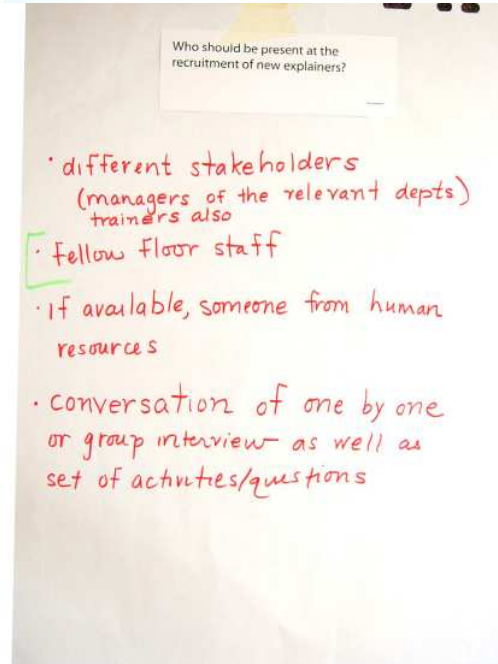 Who should be present at the
recruitment of new explainers?
· different stakeholders
(managers of the relevant depts)
trainers also
· fellow floor staff
· If available, someone from human
resources
· conversation of one by one
or group interview as well as
set of activities/questions